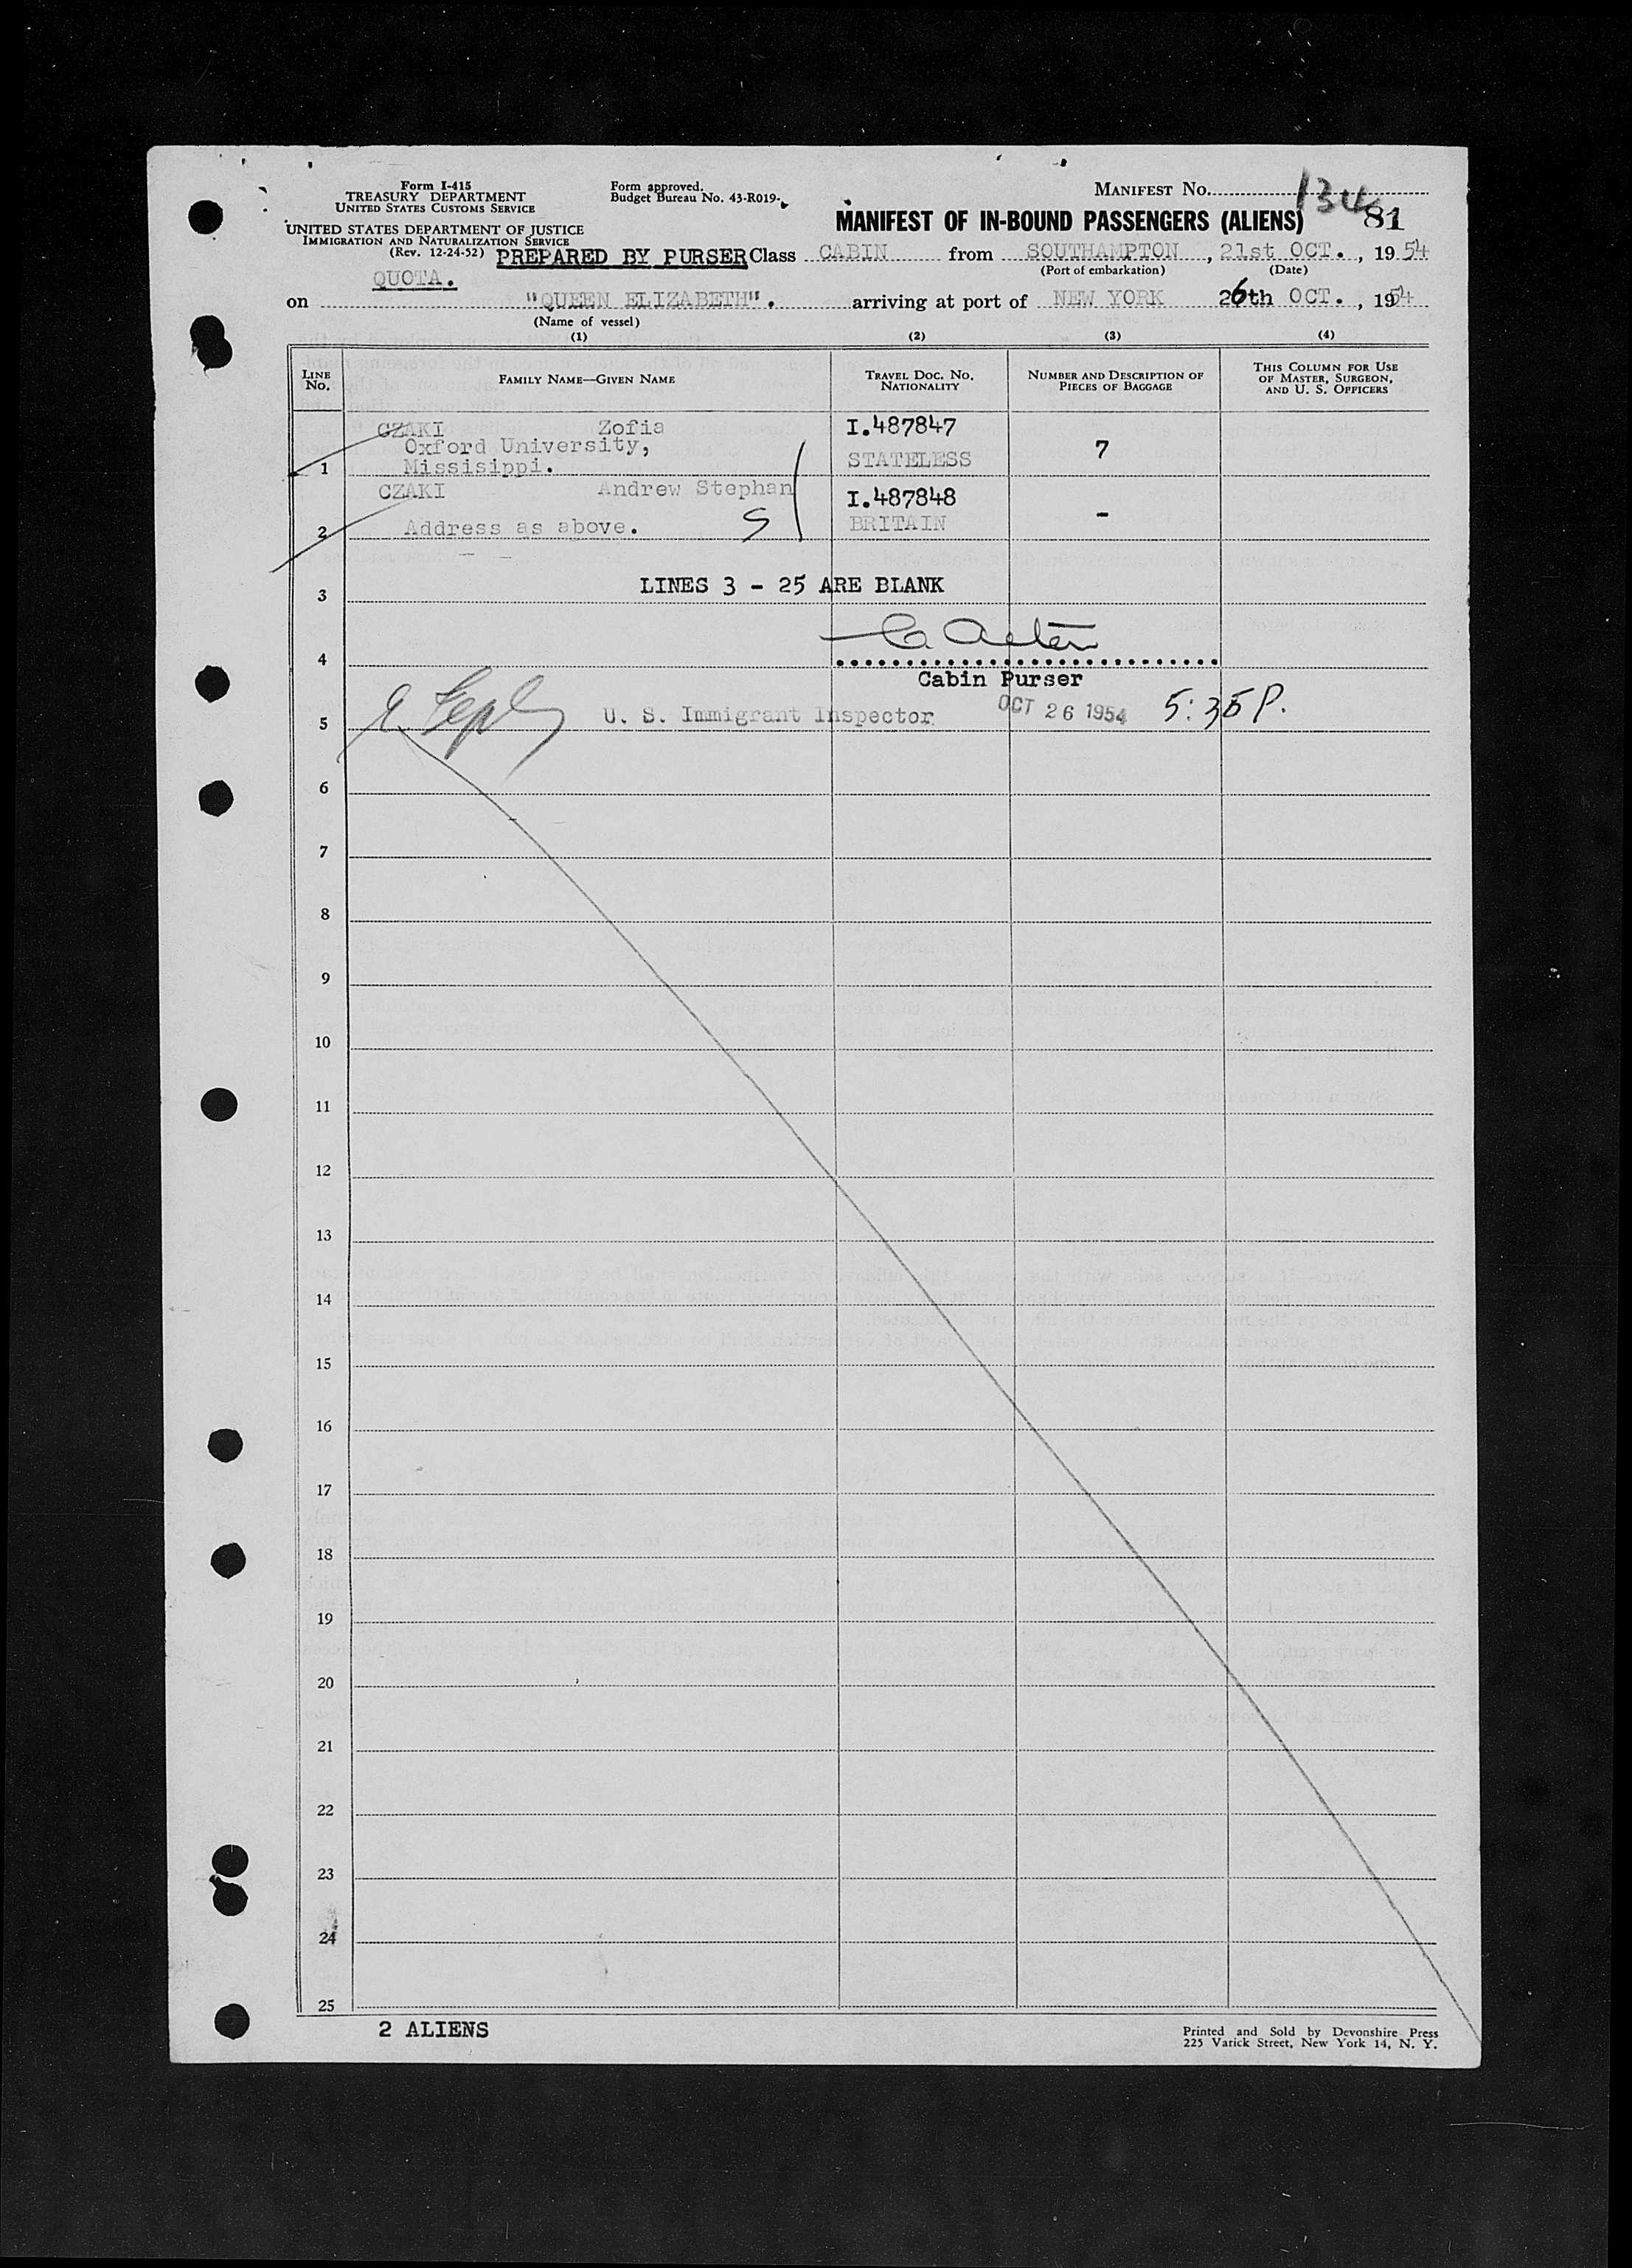 Form I-415
TREASURY DEPARTMENT
UNITED STATES CUSTOMS SERVICE
UNITED STATES DEPARTMENT OF JUSTICE
IMMIGRATION AND NATURALIZATION SERVICE
(Rev. 12-24-52)
Form approved.
Budget Bureau No. 43-R019-
MANIFEST No.
MANIFEST OF IN-BOUND PASSENGERS (ALIENS) 81
PREPARED BY PURSER Class CABIN from SOUTHAMPTON, 21st OCT., 1954
(Port of embarkation) (Date)
QUOTA.
on "QUEEN ELIZABETH". arriving at port of NEW YORK 26th OCT., 1954
(Name of vessel)
(1) (2) (3) (4)
LINE No. FAMILY NAME—GIVEN NAME TRAVEL DOC. No. NATIONALITY NUMBER AND DESCRIPTION OF PIECES OF BAGGAGE THIS COLUMN FOR USE OF MASTER, SURGEON, AND U. S. OFFICERS
CZAKI Zofia I.487847
Oxford University, 7
1 Missisippi. STATELESS
CZAKI Andrew Stephan I.487848
2 Address as above. S BRITAIN -
3 LINES 3 - 25 ARE BLANK
4
Cabin Purser
5 U. S. Immigrant Inspector OCT 26 1954 5:35 P.
6
7
8
9
10
11
12
13
14
15
16
17
18
19
20
21
22
23
24
25
2 ALIENS
Printed and Sold by Devonshire Press
225 Varick Street, New York 14, N. Y.